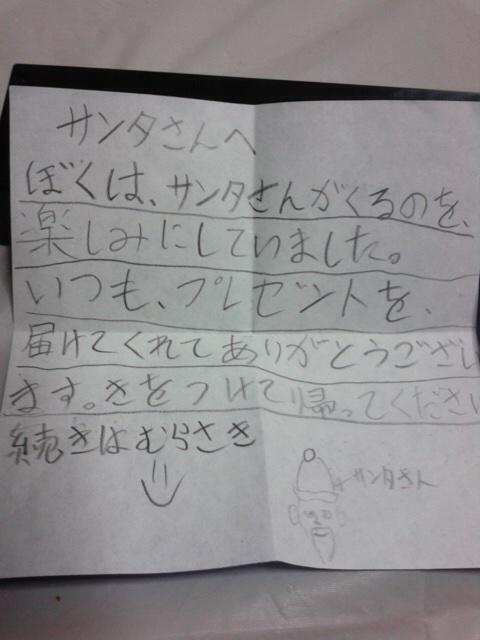 サンタさんへ
ぼくは、サンタさんがくるのを、
楽しみにしていました。
いつも、プレゼントを、
届けてくれてありがとうござい
ます。きをつけて帰ってください
続きはむらさき
サンタさん